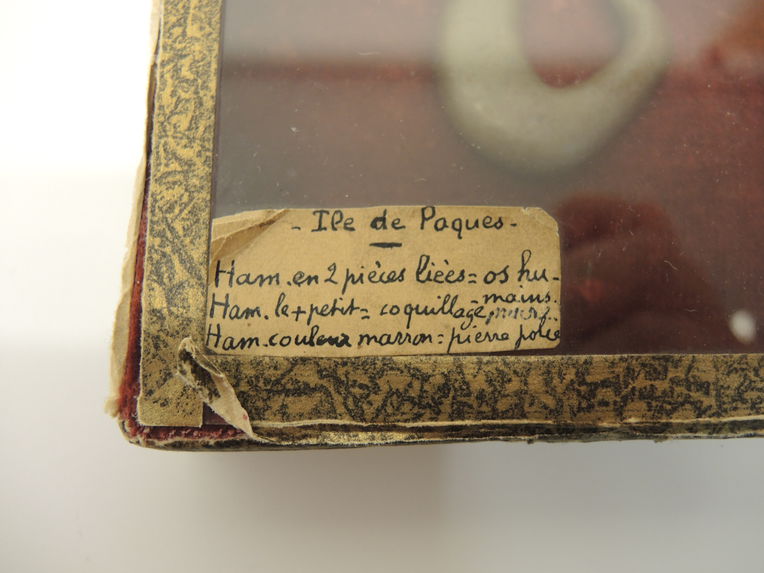 - Ile de Paques -
Ham. en 2 pièces liées = os hu-
mains.
Ham. le + petit = coquillage,
Ham. couleur marron = pierre polie